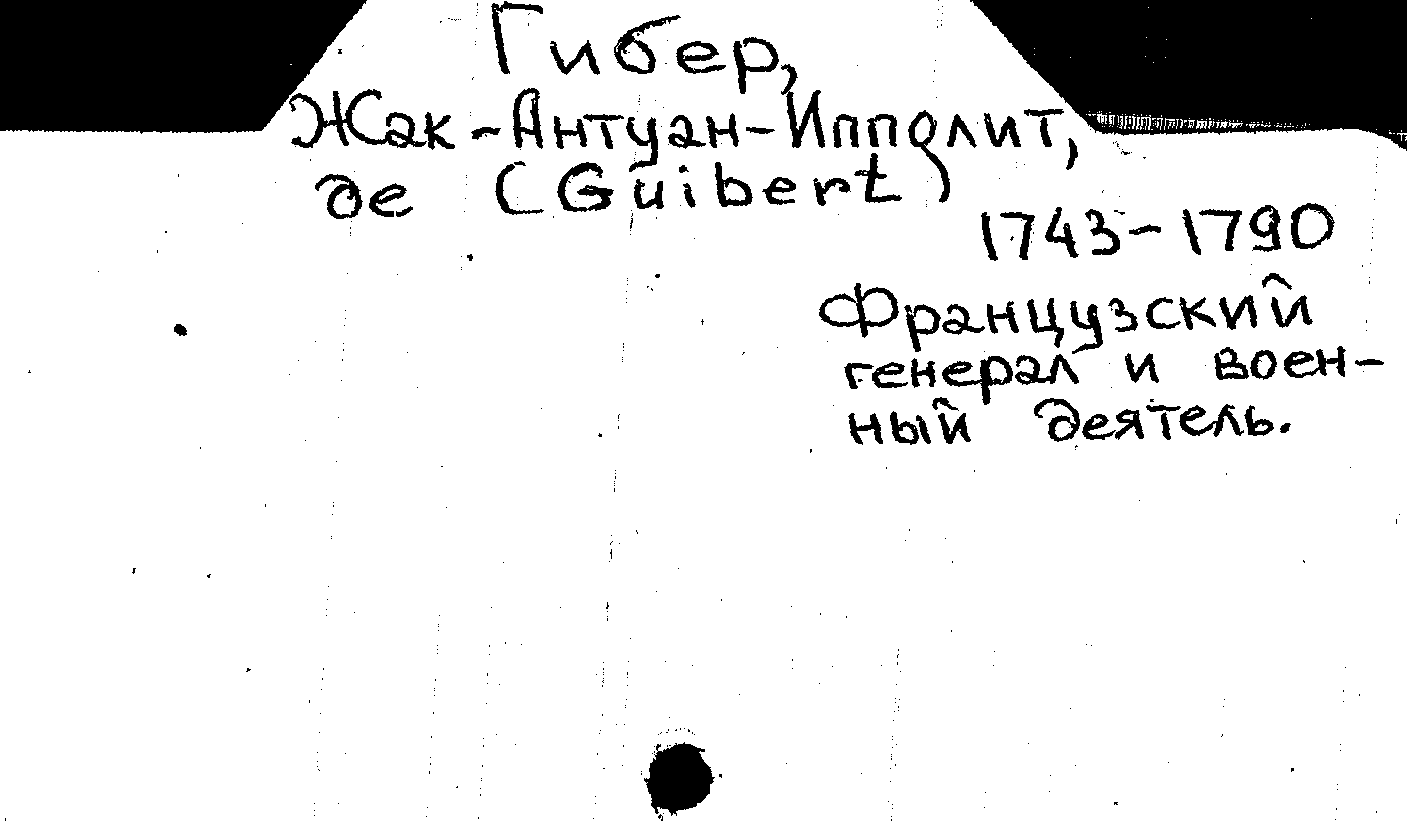 Гибер,
Жак-Антуан-Ипполит,
де (Guibert)
1743-1790
Французский
генерал и воен-
ный деятель.